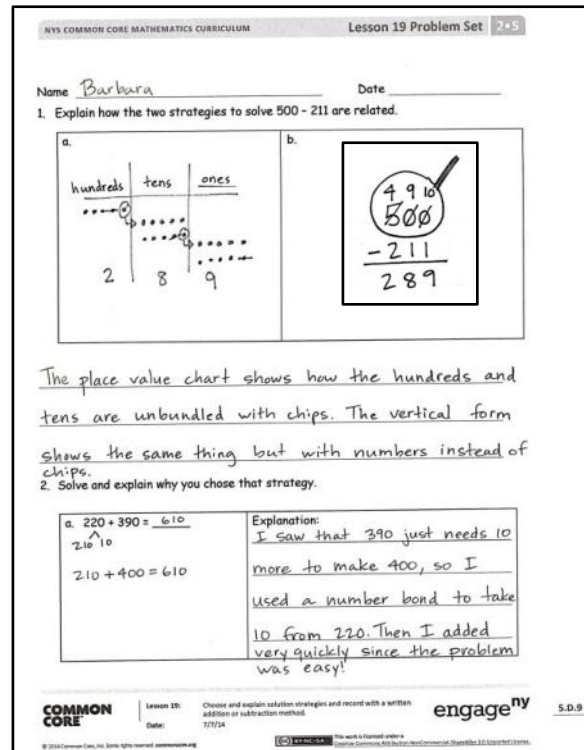 NYS COMMON CORE MATHEMATICS CURRICULUM Lesson 19 Problem Set 2•5
Name Barbara Date
1. Explain how the two strategies to solve 500 – 211 are related.
a. b.
hundreds tens ones
2 8 9
4 9 10
500
- 211
289
The place value chart shows how the hundreds and
tens are unbundled with chips. The vertical form
shows the same thing but with numbers instead of
chips.
2. Solve and explain why you chose that strategy.
a. 220 + 390 = 610
210 10
210 + 400 = 610
Explanation:
I saw that 390 just needs 10
more to make 400, so I
used a number bond to take
10 from 220. Then I added
very quickly since the problem
was easy!
COMMON
CORE
Lesson 19: Choose and explain solution strategies and record with a written
addition or subtraction method.
Date: 7/7/14
engage ny
5.D.9
© 2014 Common Core, Inc. Some rights reserved. commoncore.org
CC BY-NC-SA This work is licensed under a
Creative Commons Attribution-NonCommercial-ShareAlike 3.0 Unported License.